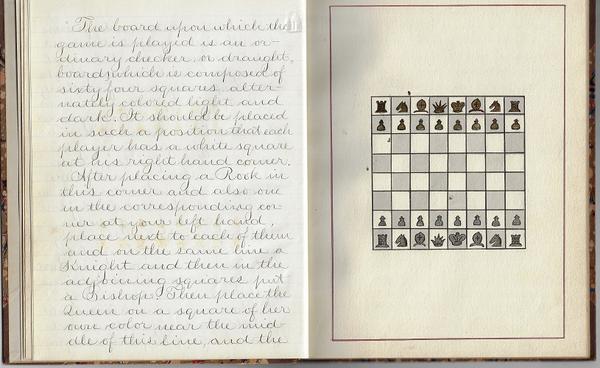 The board upon which the
game is played is an or-
dinary checker or draught
board, which is composed of
sixty four squares, alter-
nately colored light and
dark. It should be placed
in such a position that each
player has a white square
at his right hand corner.
After placing a Rook in
this corner and also one
in the corresponding cor-
ner at your left hand,
place next to each of them
and on the same line a
Knight and then in the
adjoining squares put
a Bishop. Then place the
Queen on a square of her
own color near the mid-
dle of this line, and the